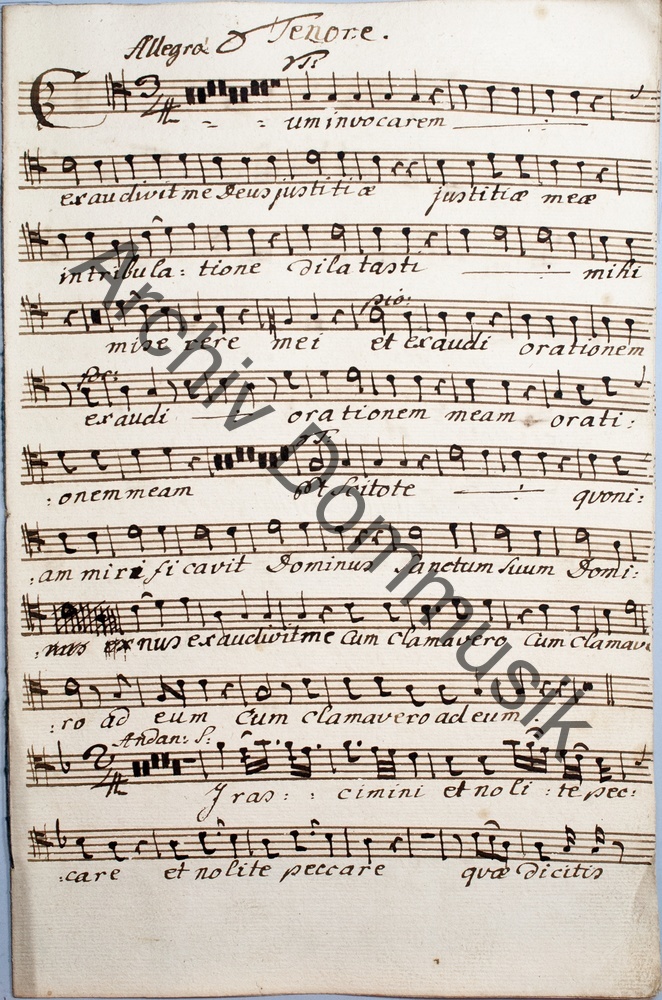 Tenore.
Allegro
T:
C um invocarem
exaudivit me Deus justitiæ justitiæ meæ
in tribula: tione dilatasti mihi
pio:
mise rere mei et exaudi orationem
for:
exaudi orationem meam orati:
T:
:onem meam et scitote quoni:
:am mirificavit Dominus Sanctum Suum Domi:
:nus exaudivit me Cum Clamavero Cum Clamave
:ro ad eum Cum Clamavero ad eum.
Andan: S:
Iras: : cimini et noli: te pec:
:care et nolite peccare quæ dicitis
Archiv Dommusik